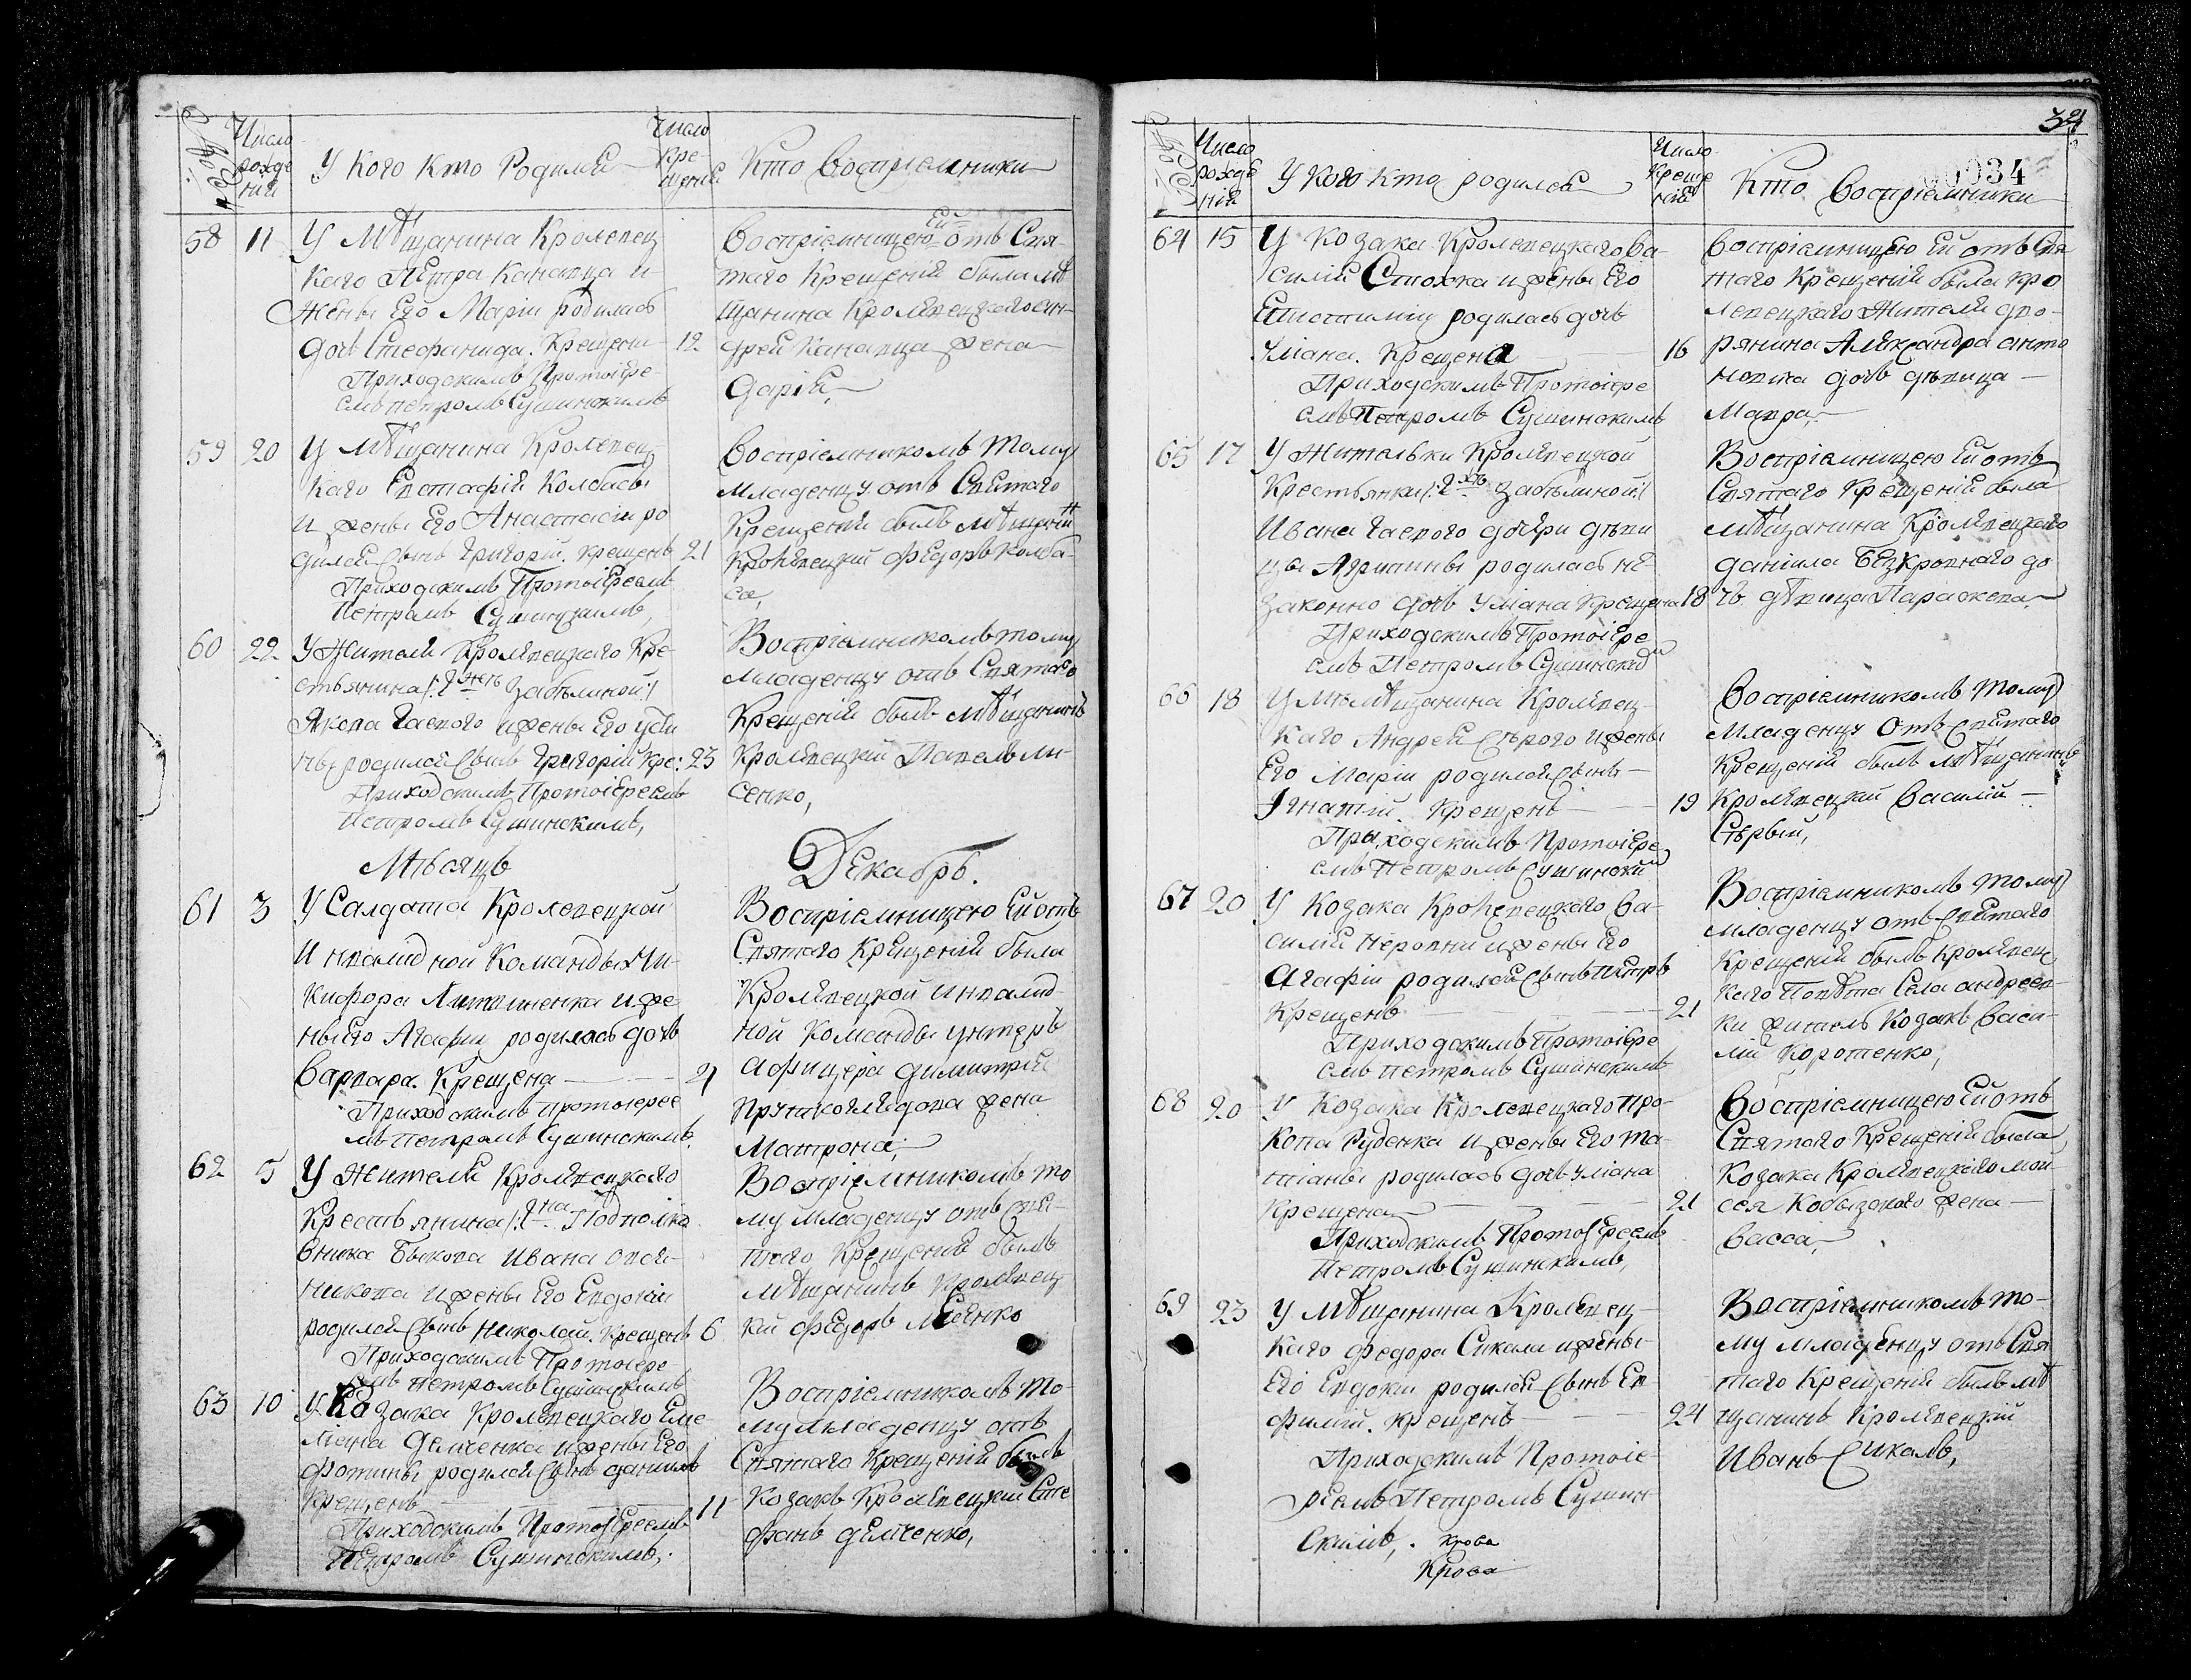 Число рожде ний
У Кого Кто Родился
Число Кре- щений
Кто Восприемники
58 11 У Мѣщанина Кролевец
каго Петра Канавца и
Жены Его Маріи родилась
дочь Стефанида. Крещена 12
Приходскимъ Протоіере
емъ Петромъ Сушинскимъ
Воспріемницею Ей отъ Свя
таго Крещенія была мѣ
щанина Кролевецкаго Ан-
дрея Канавца жена
Дарія,
59 20 У Мѣщанина Кролевец
каго Евстафія Колбасы
и жены Его Анастасіи ро
дился сынъ Григорій. Крещенъ 21
Приходскимъ Протоіереемъ
Петромъ Сушинскимъ,
Воспріемникомъ тому
младенцу отъ Святаго
Крещенія былъ мѣщанинъ
Кролевецкій Федоръ Колба-
са,
60 22 У Жителя Кролевецкаго Кре-
стьянина
Якова Гаевого и жены Его
родился сынъ Григорій Кре: 23
Приходскимъ Протоіереемъ
Петромъ Сушинскимъ,
Воспріемникомъ тому
младенцу отъ Святаго
Крещенія былъ мѣщанинъ
Кролевецкій Павелъ Ли-
сенко,
Мѣсяцъ Декабрь.
61 3 У Салдата Кролевецкой
Инвалидной Команды Ни-
кифора Литвиненка и же
ны Его Агафіи родилась дочь
Варвара. Крещена 4
Приходскимъ Протоіерее
мъ Петромъ Сушинскимъ.
Воспріемницею Ей отъ
Святаго Крещенія была
Кролевецкой Инвалид-
ной Команды унтеръ
афицера Димитрія
жена
Матрона,
62 5 У Жителя Кролевецкаго
Крестьянина Подполко
вника Быкова Ивана Овся-
никова и жены Его Евдокіи
родился сынъ Николай. Крещенъ 6
Приходскимъ Протоіере
емъ Петромъ Сушинскимъ
Воспріемникомъ то
му младенцу отъ Свя-
таго Крещенія былъ
мѣщанинъ Кролевец
кій Федоръ
63 10 У Козака Кролевецкаго Еме
льяна Демченка и жены Его
Фотины родился сынъ Даніилъ
Крещенъ 11
Приходскимъ Протоіереемъ
Петромъ Сушинскимъ,
Воспріемникомъ то-
му младенцу отъ
Святаго Крещенія былъ
Козакъ Кролевецкій Сте
фанъ Демченко,
34
00034
Число рожде ній
У Кого Кто родился
Число Креще нія
Кто Воспріемники
64 15 У Козака Кролевецкаго Ва-
силія Стожка и жены Его
родилась дочь
Уліана. Крещена 16
Приходскимъ Протоіере
емъ Петромъ Сушинскимъ
Воспріемницею Ей отъ Свя
таго Крещенія была Кро
левецкаго Жителя дво-
рянина Александра Анто
новича дочь дѣвица
Мавра,
65 17 У Жительки Кролевецкой
Крестьянки
Ивана Гаевого дочери дѣви
цы родилась не
законно дочь Уліана Крещена 18
Приходскимъ Протоіере
емъ Петромъ Сушинским
Воспріемницею Ей отъ
Святаго Крещенія была
мѣщанина Кролевецкаго
Даніила Безкровнаго до
чь дѣвица Параскева,
66 18 У Мѣщанина Кролевец-
каго Андрея Сѣрого и жены
Его Маріи родился сынъ
Игнатій. Крещенъ 19
Приходскимъ Протоіере
емъ Петромъ Сушинским
Воспріемникомъ тому
младенцу отъ Святаго
Крещенія былъ мѣщанинъ
Кролевецкій Василій
Сѣрый,
67 20 У Козака Кролевецкаго Ва-
силія Неровни и жены Его
Агафіи родился сынъ Петръ
Крещенъ 21
Приходскимъ Протоіере
емъ Петромъ Сушинскимъ
Воспріемникомъ тому
младенцу отъ Святаго
Крещенія былъ Кролевец
каго Повѣта Села Андреев-
ки житель Козакъ Васи-
лій Коротенко,
68 20 У Козака Кролевецкаго Про-
копа Руденка и жены Его Та-
тіаны родилась дочь Уліана
Крещена 21
Приходскимъ Протоіереемъ
Петромъ Сушинскимъ,
Воспріемницею Ей отъ
Святаго Крещенія была
Козака Кролевецкаго Мои
сея Кобызского жена
Васса,
69 23 У Мѣщанина Кролевец-
каго Федора Сикала и жены
Его Евдокіи родился сынъ Ев
фимій. Крещенъ 24
Приходскимъ Протоіе-
реемъ Петромъ Сушин
скимъ,
Воспріемникомъ то-
му младенцу отъ Свя
таго Крещенія былъ мѣ
щанинъ Кролевецкій
Иванъ Сикалъ,